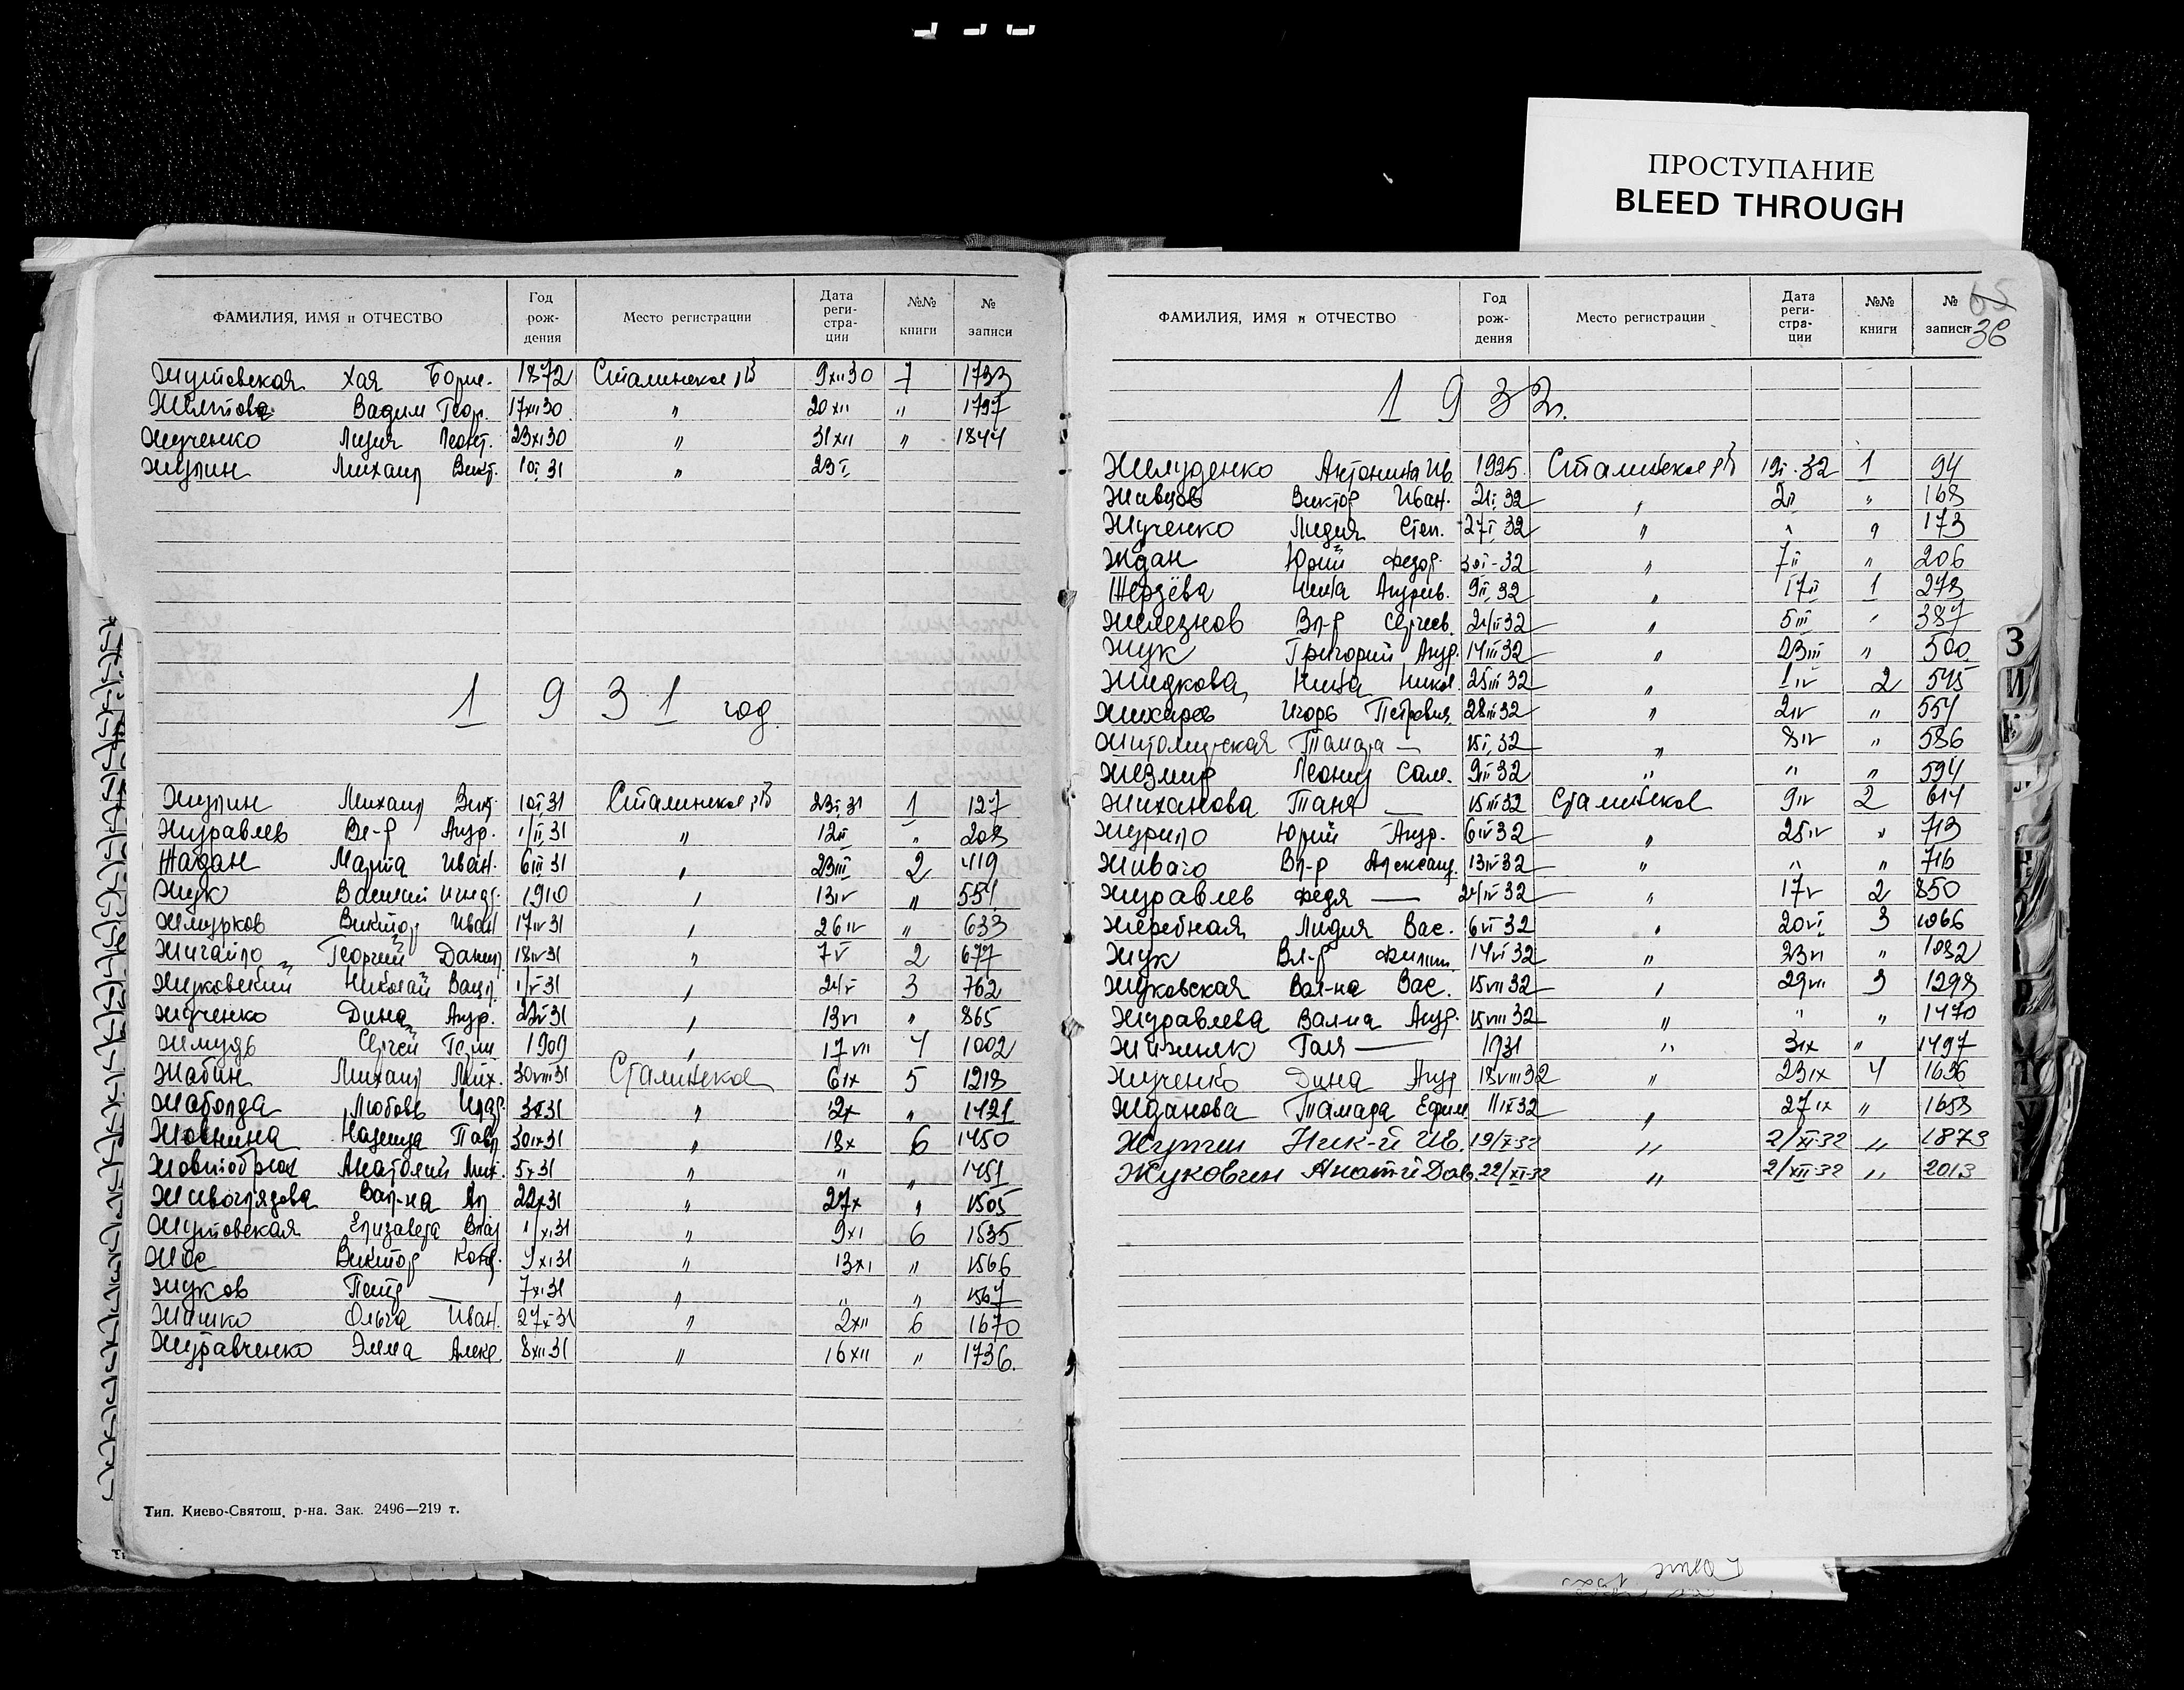 ПРОСТУПАНИЕ
BLEED THROUGH
ФАМИЛИЯ, ИМЯ и ОТЧЕСТВО Год рож- дения Место регистрации Дата реги- стра- ции №№ книги № записи
Жутовская Хая 1872 Сталинское 9 XII 30 7 1733
Вадим Геор. 17 XII 30 " 20 XII " 1797
Жученко Лидия Леонт. 23 XI 30 " 31 XII " 1844
Жулин Михаил Викт. 10 I 31 " 23 I
1931 год
Жулин Михаил Викт. 10 I 31 Сталинское 23 I 31 1 127
Журавлев Вл-р Андр. 1/II 31 " 12 II " 208
Жадан Мария Иван. 6 III 31 " 23 III 2 419
Жук Василий 1910 " 13 IV " 551
Жмурков Виктор Иван 17 IV 31 " 26 IV " 633
Жигайло Георгий Данил. 18 IV 31 " 7 V 2 677
Жуковский Николай 1/V 31 " 24 V 3 762
Жученко Дина Андр. 31 " 13 VI " 865
Жмудь Сергей 1909 " 17 VII 4 1002
Жабин Михаил Мих. 30 VIII 31 Сталинское 6 IX 5 1218
Жаболда Любовь 31 " 2 X " 1421
Жовнина Надежда Павл 30 IX 31 " 18 X 6 1450
Анатолий Мих. 5 X 31 " " " 1451
Живоглядова Вал-на Ал 22 X 31 " 27 X " 1505
Жутовская Елизавета Влад 1/XI 31 " 9 XI 6 1535
Жос Виктор Конд. 9 XI 31 " 13 XI " 1566
Жуков Петр — 7 XI 31 " " " 1567
Жашко Ольга Иван. 27 X 31 " 2 XII 6 1670
Журавченко Эмма Алекс. 8 XII 31 " 16 XII " 1736.
Тип. Киево-Святош. р-на. Зак. 2496—219 т.
ФАМИЛИЯ, ИМЯ и ОТЧЕСТВО Год рож- дения Место регистрации Дата реги- стра- ции №№ книги № записи
65
36
1932г.
Желуденко Антонина Ив. 1925. Сталинское 19 I-32 1 94
Живцов Виктор Иван. 21 I 32 " 2 II " 168
Жученко Лидия Степ. 27 I 32 " " " 173
Ждан Юрий Федор. 30 I-32 " 7 II " 206
Жердёва Нина Андреев. 9 II 32 " 17 II 1 273
Железнов Вл-р Сергеев. 24/II 32 " 5 III " 387
Жук Григорий Андр. 14 III 32 " 23 III " 500
Жидкова Нина Никол. 25 III 32 " 1 IV 2 545
Жихарев Игорь Петрович 28 III 32 " 2 IV " 551
Житомирская Тамара — 15 I 32 " 8 IV " 586
Жезмир Леонид Сам. 9 III 32 " " " 594
Жиханова Таня — 15 III 32 Сталинское 9 IV 2 614
Журило Юрий Андр. 6 IV 32 " 25 IV " 713
Живаго Вл-р Александ. 13 IV 32 " " " 716
Журавлев Федя — 24/IV 32 " 17 V 2 850
Жеребная Лидия Вас. 6 VI 32 " 20 VI 3 1066
Жук Вл-р Филип. 14 VI 32 " 23 VI " 1082
Жуковская Вал-на Вас. 15 VII 32 " 29 VII 3 1298
Журавлева Вал-на Андр. 15 VIII 32 " " " 1470
Жижияк Галя — 1931 " 3 IX " 1497
Жученко Дина Андр 18 VIII 32 " 23 IX 4 1636
Жданова Тамара Ефим 11 IX 32 " 27 IX " 1658
Жулин Ник-й Ив. 19/X-32 " 2/XI-32 " 1873
Жуковин Анат-й Дав. 22/XI-32 " 2/XII-32 " 2013
З
И